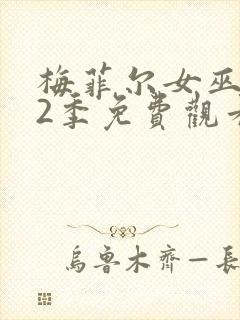 梅菲尔女巫
2季免費觀看
烏魯木齊一長